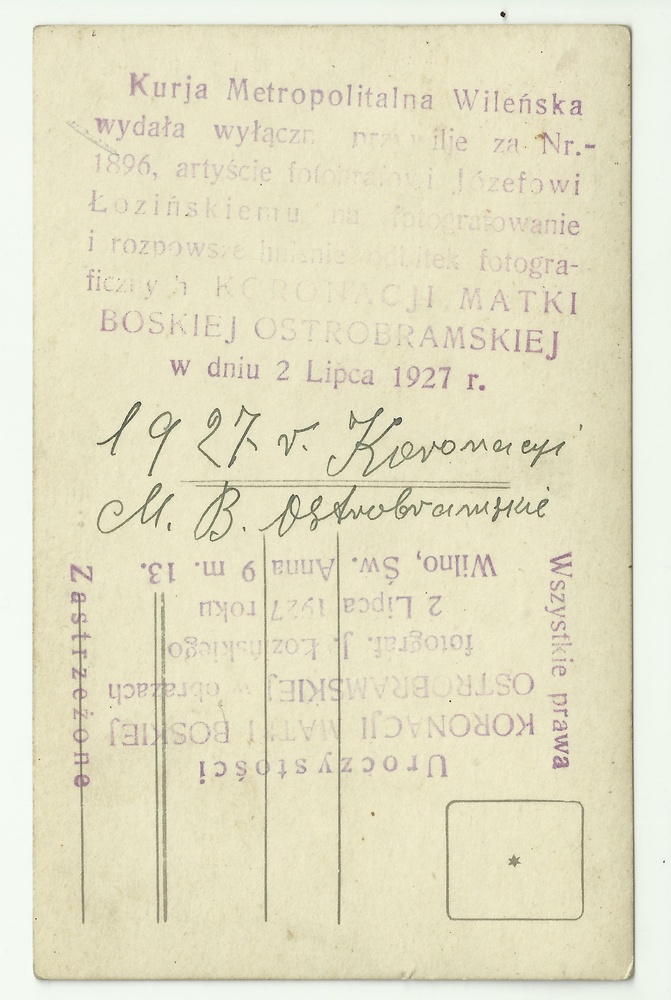 Kurja Metropolitalna Wileńska
wydała wyłączn prawilje za Nr.-
1896, artyście fotografowi Józefowi
Łozińskiemu na fotografowanie
i rozpowszechnianie odbitek fotogra-
ficznych KORONACJI MATKI
BOSKIEJ OSTROBRAMSKIEJ
w dniu 2 Lipca 1927 r.
1927 r. Koronacji
M. B. Ostrobramskie
Uroczystości
KORONACJI MATKI BOSKIEJ
OSTROBRAMSKIEJ w obrazach
fotograf. J. Łozińskiego
2 Lipca 1927 roku
Wilno, Św. Anna 9 m. 13.
Wszystkie prawa
Zastrzeżone